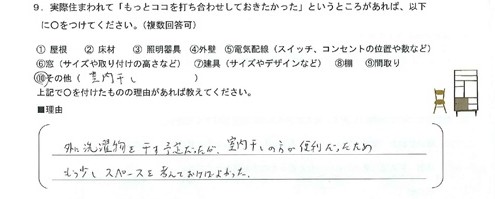 ９．実際住まわれて「もっとココを打ち合わせしておきたかった」というところがあれば、以下
に○をつけてください。（複数回答可）
① 屋根　② 床材　③ 照明器具　④外壁　⑤電気配線（スイッチ、コンセントの位置や数など）
⑥窓（サイズや取り付けの高さなど）　⑦建具（サイズやデザインなど）　⑧棚　⑨間取り
⑩その他（　室内干し　）
上記で○を付けたものの理由があれば教えてください。
■理由
外に洗濯物を干す予定だったが、室内干しの方が便利だったため
もう少しスペースを考えておけばよかった。